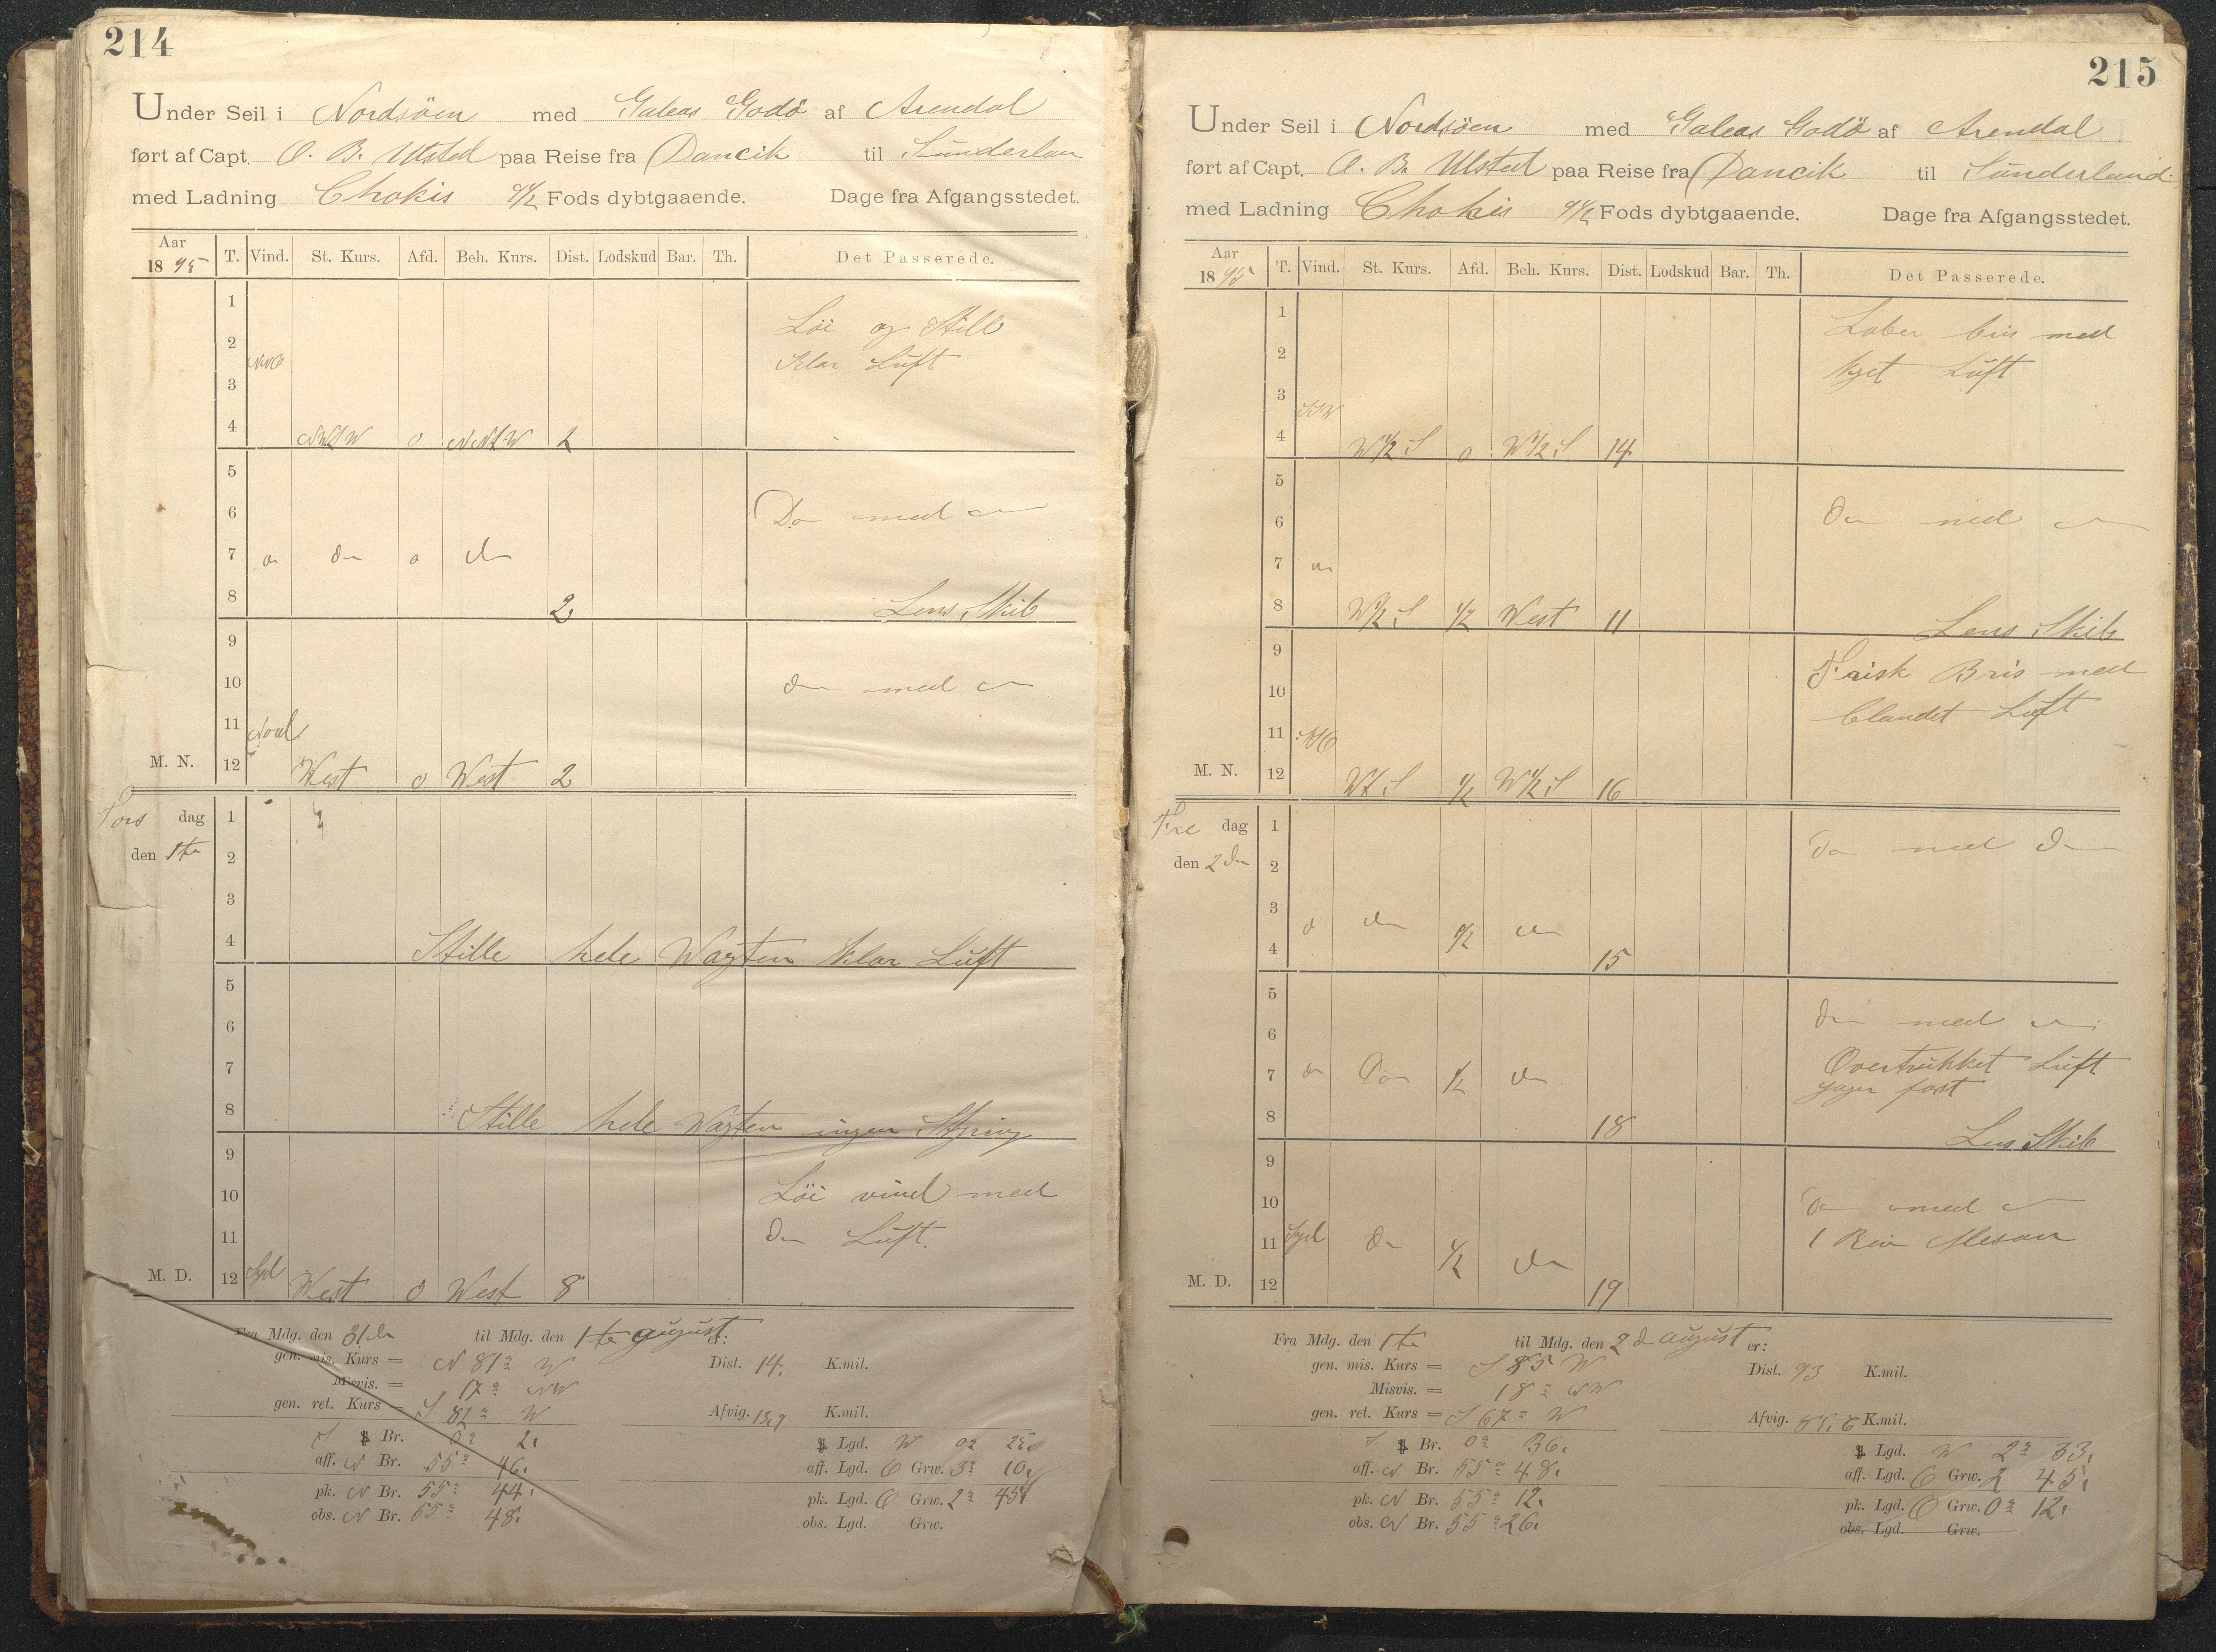 214
Under Seil i Nordsöen med Galeas Godö af Arendal
ført af Capt. O. B. Ulsted paa Reise fra Dancik til Sunderlan
med Ladning Chokis 9 1/2 Fods dybtgaaende. Dage fra Afgangsstedet.
Aar 1895 T. Vind. St. Kurs. Afd. Beh. Kurs. Dist. Lodskud Bar. Th. Det Passerede.
1
Löi og Still
2
Klar Luft
3
4 0 2
5
6 Do med do
7 do do o do
8 2 Lens Skib
9
10 do med do
11 Nord
M. N. 12 West 0 West 2
Tors dag 1
den 1te 2
3
4 Stille hele Wagten Klar Luft
5
6
7
8 Stille hele Wagten ingen Styring
9
10 Löi vind med
11 do Luft.
M. D. 12 Syd West 0 West 8
Fra Mdg. den 31de til Mdg. den 1te august er:
gen. mis. Kurs = N 81° W Dist. 14. K.mil.
Misvis. = 17° NW
gen. ret. Kurs = S 82° W Afvig. 13,9 K.mil.
S Br. 0° 2. Lgd. W 0° 25.
aff. N Br. 55° 46. aff. Lgd. O Grw. 3° 10.
pk. N Br. 55° 44. pk. Lgd. O Grw. 2° 45.
obs. N Br. 55° 48. obs. Lgd. Grw.
215
Under Seil i Nordsöen med Galeas Godö af Arendal
ført af Capt. O. B. Ulsted paa Reise fra Dancik til Sunderland
med Ladning Chokis 9 1/2 Fods dybtgaaende. Dage fra Afgangsstedet.
Aar 1895 T. Vind. St. Kurs. Afd. Beh. Kurs. Dist. Lodskud Bar. Th. Det Passerede.
1
Laber bris med
2
kyet Luft
3
SSW
4 W 1/2 S 0 W 1/2 S 14
5
6 do med do
7 do
8 W 1/2 S 1/2 West 11 Lens Skib
9
Frisk Bris med
10
blandet Luft
11
M. N. 12 1/2 W 1/2 S 16
Fre dag 1
do med do
den 2den 2
3 do do 1/2 do
4 15
5
6 do med do
Overtrukket Luft
7 do Do 1/2 do
Jager fast
8 18 Lens Skib
9
10 do med do
11 Syd do 1/2 do 1 Rev Mesan
M. D. 12 19
Fra Mdg. den 1te til Mdg. den 2d august er:
gen. mis. Kurs = S 85 W Dist. 93 K.mil.
Misvis. = 18° NW
gen. ret. Kurs = S 67° W Afvig. K.mil.
S Br. 0° 36. Lgd. W 2° 33.
aff. N Br. 55° 48. aff. Lgd. O Grw. 2 45.
pk. N Br. 55° 12. pk. Lgd. O Grw. 0° 12.
obs. N Br. 55° 26. obs. Lgd. Grw.